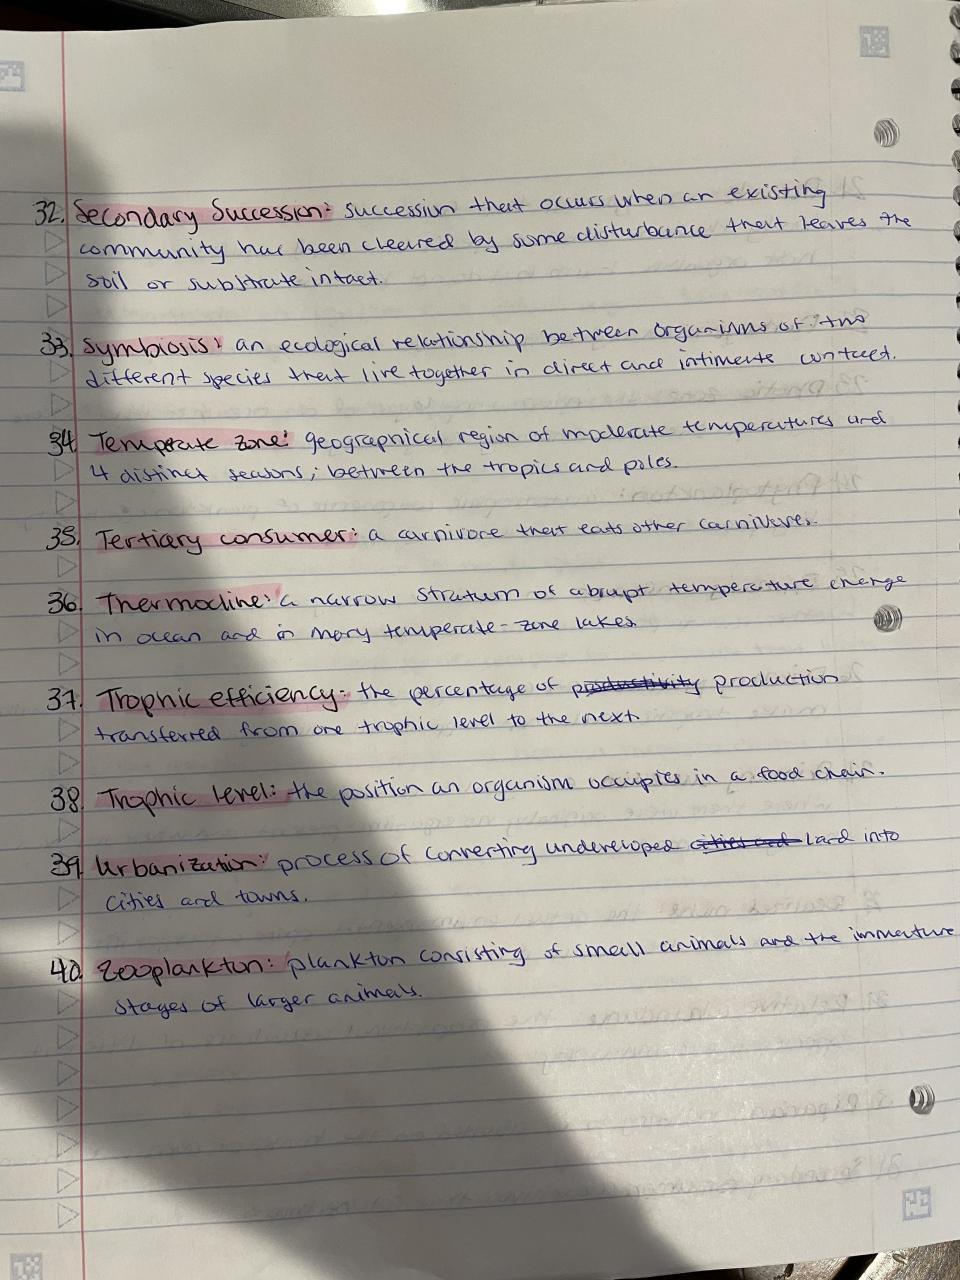 32. Secondary Succession: succession that occurs when an existing
community has been cleared by some disturbance that leaves the
soil or substrate intact.
33. Symbiosis: an ecological relationship between organisms of two
different species that live together in direct and intimate contact.
34. Temperate zone: geographical region of moderate temperatures and
4 distinct seasons; between the tropics and poles.
35. Tertiary consumer: a carnivore that eats other carnivores.
36. Thermocline: a narrow stratum of abrupt temperature change
in ocean and in many temperate-zone lakes.
37. Trophic efficiency: the percentage of productivity production
transferred from one trophic level to the next.
38. Trophic level: the position an organism occupies in a food chain.
39. Urbanization: process of converting undeveloped cities and land into
cities and towns.
40. Zooplankton: plankton consisting of small animals and the immature
stages of larger animals.